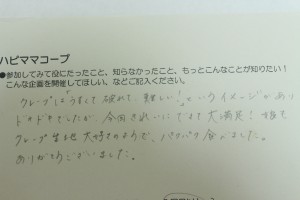 ハピママコープ
●参加してみて役にたったこと、知らなかったこと、もっとこんなことが知りたい！
こんな企画を開催してほしい。などご記入ください。
クレープはうすくて破れて、難しい！というイメージがあり
ドキドキでしたが、今回きれいにできて大満足！娘も
クレープ生地大好きのようで、パクパク食べました。
ありがとうございました。